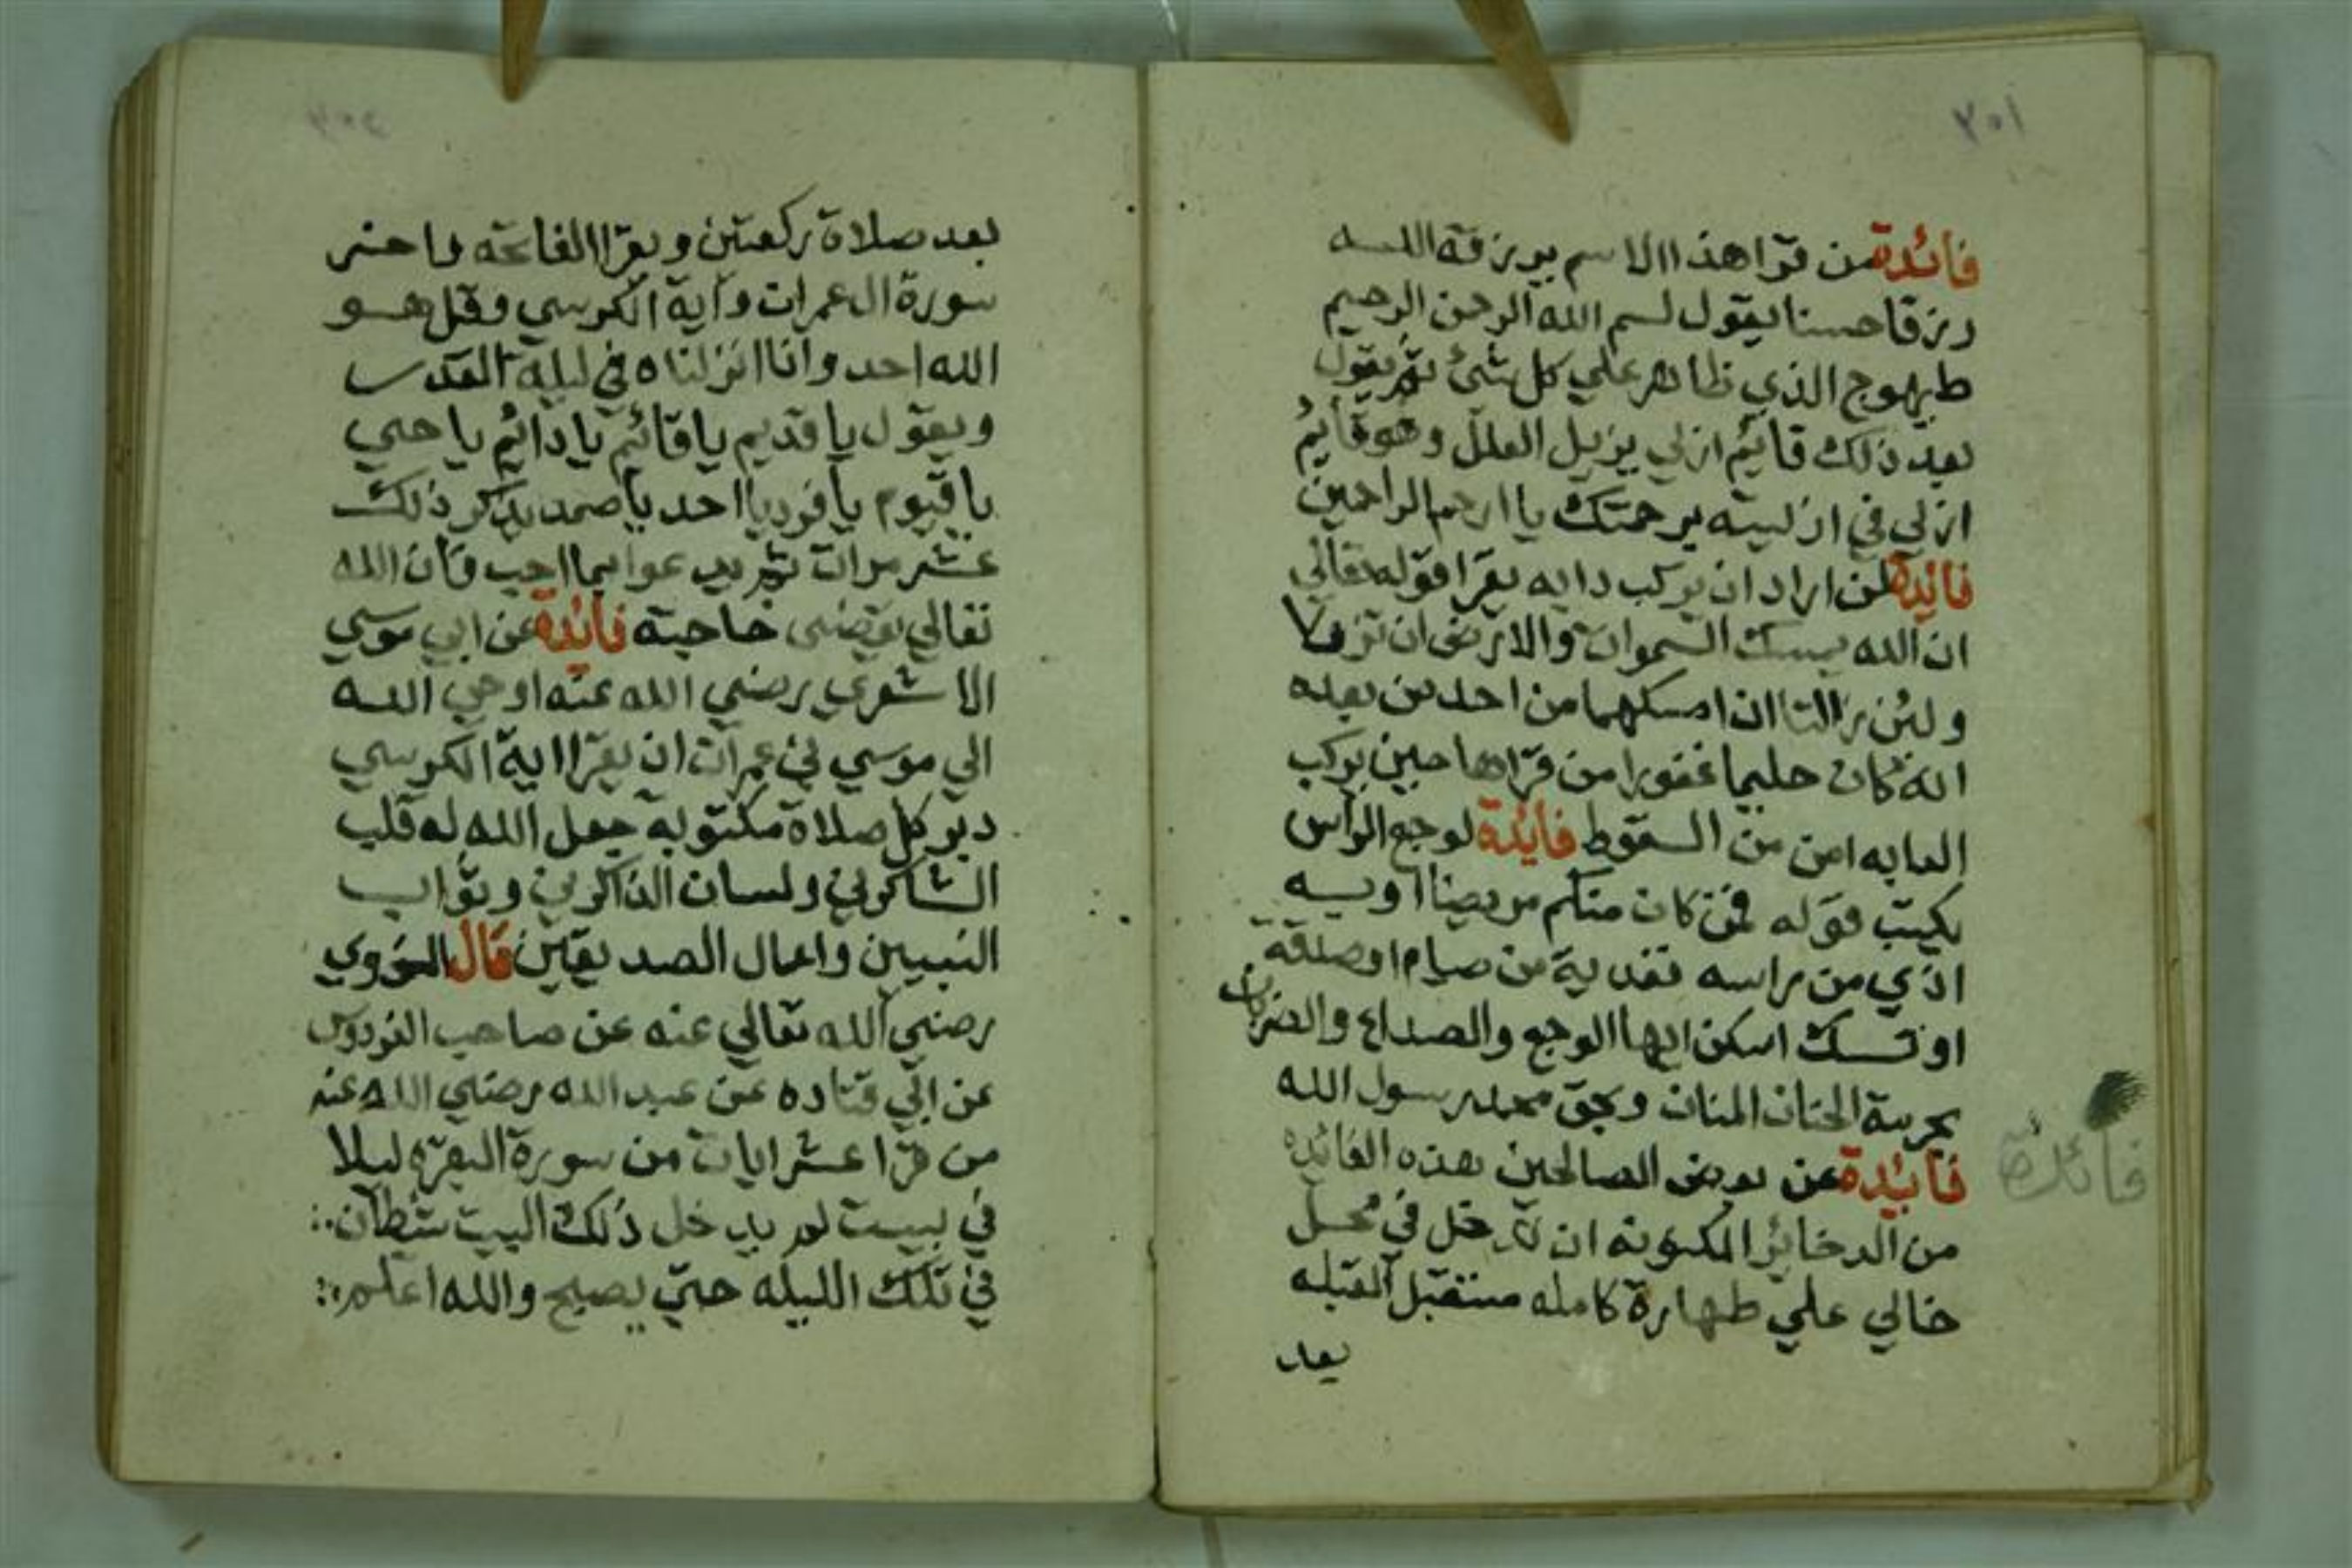 ٢٥١
فائدة من قرا هذا الاسم يرزقه الله
رزقا حسنا يقول بسم الله الرحمن الرحيم
طيهوج الذي ظاهر علي كل شئ ثم يقول
بعد ذلك قائم ازلي يزيل العلل وهو قايم
ازلي في ازليته برحمتك يا ارحم الراحمين
فائدة لمن اراد ان يركب دابه يقرا قوله تعالي
ان الله يمسك السموات والارض ان تزولا
ولئن زالتا ان امسكهما من احد من بعده
انه كان حليما غفورا من قراها حين يركب
الدابه امن من السقوط فايدة لوجع الراس
يكتب قوله فمن كان منكم مريضا او به
اذي من راسه ففدية من صيام او صدقة
او نسك اسكن ايها الوجع والصداع والضربان
بحرمة الحنان المنان وبحق محمد رسول الله
فائدة عن بعض الصالحين هذه الفائده
فائدة
من الدخائر المكنونه ان تدخل في محل
خالي علي طهارة كامله مستقبل القبله
بعد
بعد صلاة ركعتين ويقرا الفاتحه واخر
سورة ال عمران واية الكرسي وقل هو
الله احد وانا انزلناه في ليلة القدر
ويقول يا قديم يا قائم يا دائم يا حي
يا قيوم يا فرد يا احد يا صمد يذكر ذلك
عشر مرات ثم يدعوا بما احب فان الله
تعالي يقضي حاجته فائدة عن ابي موسي
الاشعري رضي الله عنه اوحي الله
الي موسي بن عمران ان يقرا اية الكرسي
دبر كل صلاة مكتوبه جعل الله له قلب
الشاكرين ولسان الذاكرين وثواب
النبيين واعمال الصديقين قال النووي
رضي الله تعالي عنه عن صاحب الفردوس
عن ابي قتاده عن عبد الله رضي الله عنه
من قرا عشر ايات من سورة البقره ليلا
في بيت لم يدخل ذلك البيت شيطان
في تلك الليله حتي يصبح والله اعلم